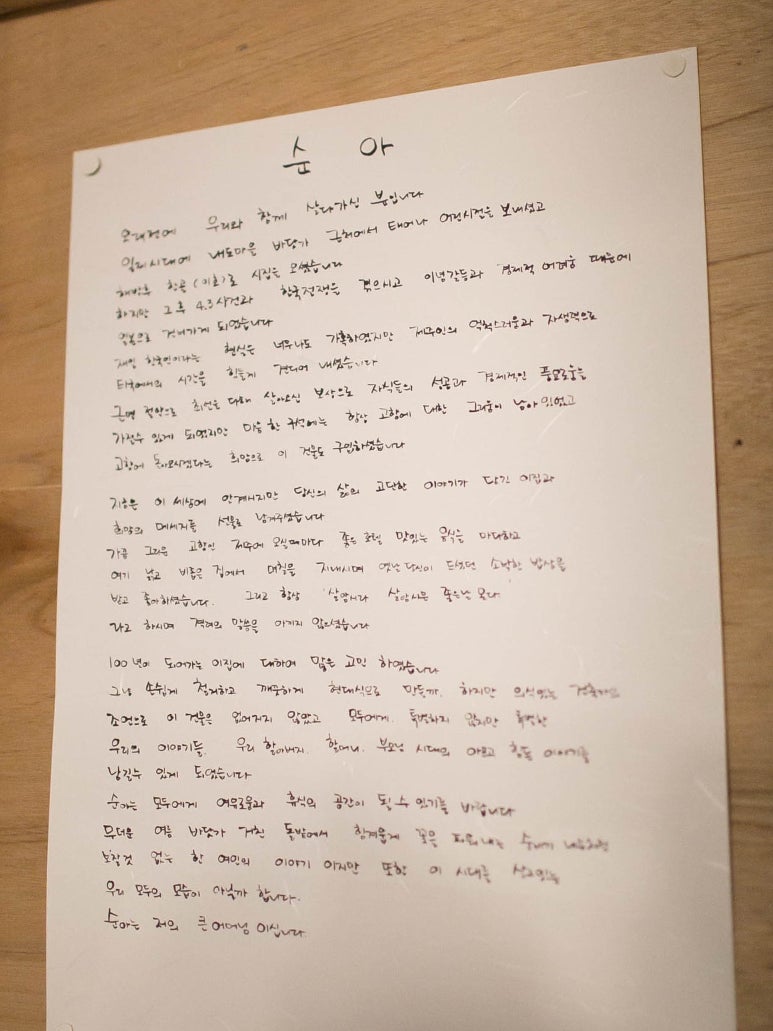 순아
오래전에 우리와 함께 살다가신 분입니다
일제시대에 내도마을 바닷가 근처에서 태어나 어린시절을 보내셨고
해방후 항골(이호)로 시집을 오셨습니다
하지만 그후 4.3사건과 한국전쟁을 겪으시고 이념갈등과 경제적 어려움 때문에
일본으로 건너가게 되었습니다
재일 한국인이라는 현실은 너무나도 가혹하였지만 제주인의 억척스러움과 자생력으로
타국에서의 시간을 힘들게 견디어 내셨습니다
근면 절약으로 최선을 다해 살아오신 보상으로 자식들의 성공과 경제적인 풍요로움을
가질수 있게 되었지만 마음 한 구석에는 항상 고향에 대한 그리움이 남아있었고
고향에 돌아오시겠다는 희망으로 이 건물도 구입하셨습니다
지금은 이 세상에 안계시지만 당신의 삶의 고단한 이야기가 담긴 이집과
희망의 메세지를 선물로 남겨주셨습니다
가끔 그리운 고향인 제주에 오실때마다 좋은 호텔 맛있는 음식을 마다하고
여기 낡고 비좁은 집에서 며칠을 지내시며 옛날 당신이 드셨던 소박한 밥상을
받고 좋아하셨습니다. 그리고 항상 '살암시라 살암시믄 좋은날 온다'
라고 하시며 격려의 말씀을 아끼지 않으셨습니다
100년이 되어가는 이집에 대하여 많은 고민 하였습니다
그냥 손쉽게 철거하고 깨끗하게 현대식으로 만들까. 하지만 의식있는 건축가의
조언으로 이 건물은 없어지지 않았고 모두에게. 특별하지 않지만 특별한
우리의 이야기들. 우리 할아버지. 할머니. 부모님 시대의 아프고 힘든 이야기를
남길수 있게 되었습니다
순아는 모두에게 여유로움과 휴식의 공간이 될 수 있기를 바랍니다
무더운 여름 바닷가 거친 돌밭에서 힘겨웁게 꽃을 피워내는
보잘것 없는 한 여인의 이야기 이지만 또한 이 시대를 살고있는
우리 모두의 모습이 아닐까 합니다.
순아는 저의 큰어머님 이십니다